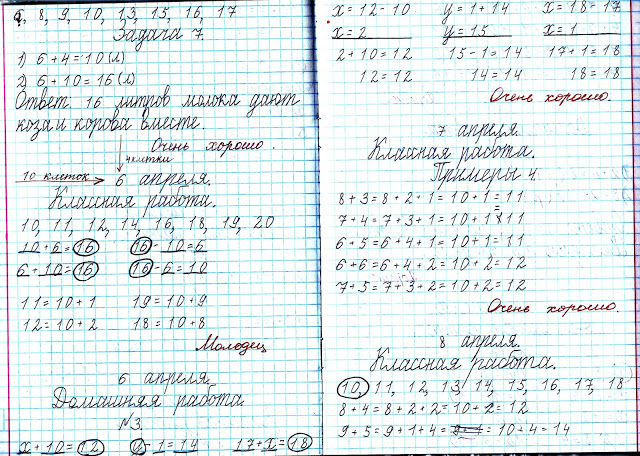 8, 9, 10, 13, 15, 16, 17
Задача 7.
1) 6+4=10(л)
2) 6+10=16(л)
Ответ: 16 литров молока дают
коза и корова вместе.
Очень хорошо.
4клетки
10 клеток
6 апреля.
Классная работа.
10, 11, 12, 14, 16, 18, 19, 20
10+6=16 16-10=6
6+10=16 16-6=10
11=10+1 19=10+9
12=10+2 18=10+8
Молодец
6 апреля.
Домашняя работа.
№3.
x+10=12 y-1=14 17+x=18
x=12-10 y=1+14 x=18-17
x=2 y=15 x=1
2+10=12 15-1=14 17+1=18
12=12 14=14 18=18
Очень хорошо.
7 апреля.
Классная работа.
Примеры 4.
8+3=8+2+1=10+1=11
7+4=7+3+1=10+1=11
6+5=6+4+1=10+1=11
6+6=6+4+2=10+2=12
7+5=7+3+2=10+2=12
Очень хорошо.
8 апреля.
Классная работа.
10, 11, 12, 13, 14, 15, 16, 17, 18
8+4=8+2+2=10+2=12
9+5=9+1+4= =10+4=14